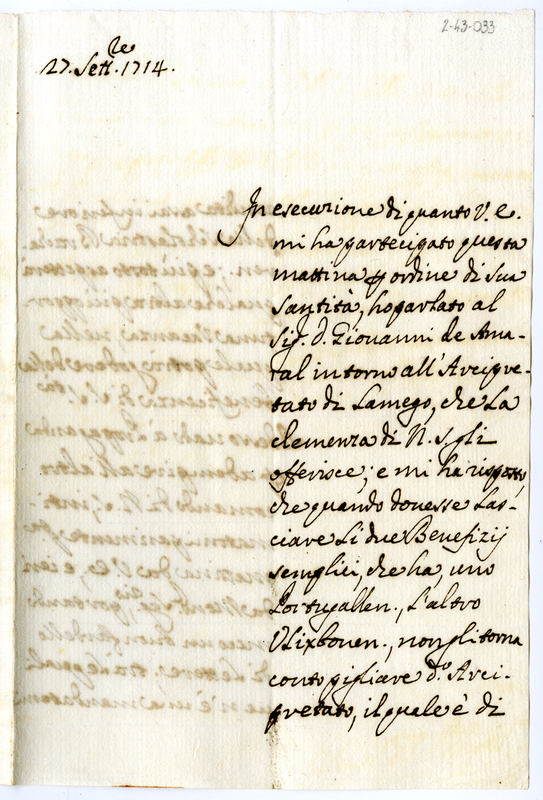 2-43-033
27. Sett.re 1714.
In esecuzione di quanto V. E.
mi ha partecipato questa
mattina p ordine di Sua
Santità, ho parlato al
Sig. D. Giovanni de Ama-
ral intorno all'Arcipre-
tato di Lamego, che La
clemenza di N. S. gli
offerisce; e mi ha risposto,
che quando douesse Las-
ciare Li due Benefizij
semplici, che ha, uno
Portugallen., L'altro
Vlixbonen., non gli torna
conto pigliare d.o Arci-
pretato, il quale è di